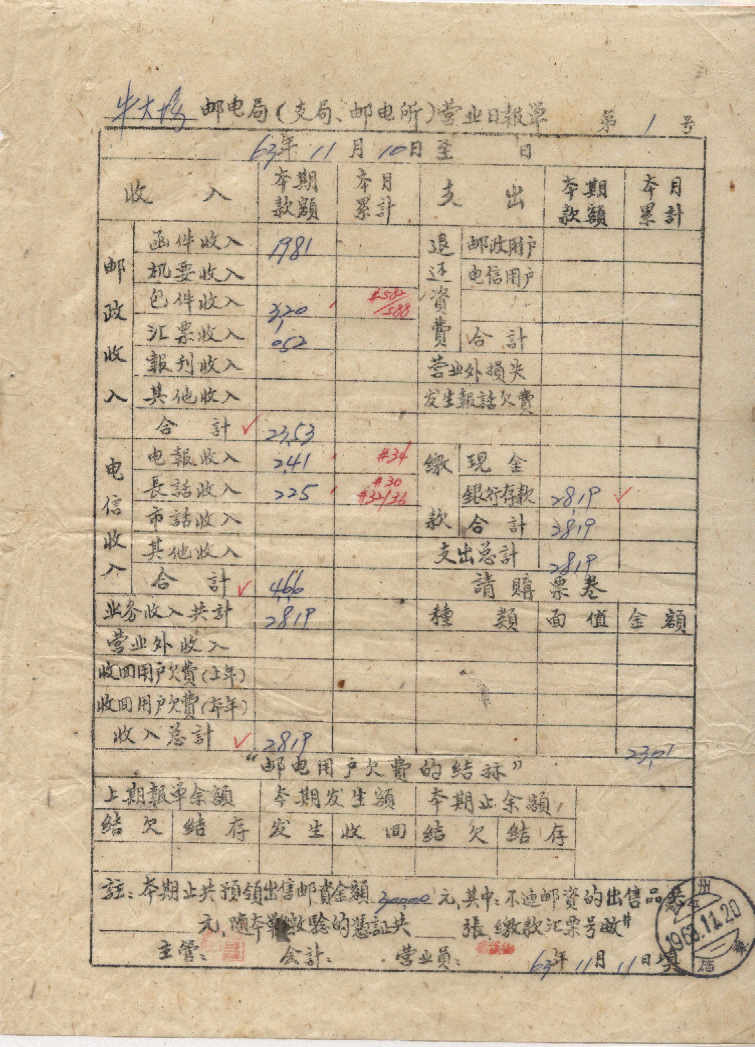 牛大场邮电局(支局、邮电所)营业日報单 第1号
63年11月10日至 日
收入 本期款额 本月累計 支出 本期款额 本月累計
邮政收入 函件收入 1981 退还資費 邮政用户
机要收入 电信用户
包件收入 3,20 #582/588
汇票收入 052 合計
報刊收入 营业外損失
其他收入 发生報話欠費
合計 ✓ 23,53
电信收入 电報收入 2,41 #34 缴款 現金
長話收入 225 #30 #32/36 銀行存款 28,19 ✓
市話收入 合計 2819
其他收入 支出总計 2819
合計 ✓ 4,66 請購票卷
业务收入共計 28,19 種類 面值 金額
营业外收入
收回用户欠費(上年)
收回用户欠費(本年)
收入总計 ✓ 2819 23,01
“邮电用户欠費的結粽”
上期報单余額 本期发生額 本期止余額
結欠 結存 发生 收回 結欠 結存
註:本期止共預領出售邮資金額 30000 元,其中:不连邮資的出售品
元,随本单缴驗的憑証共 张 缴款汇票号數#
主管: 会計: 营业员: 63年11月11日填
州
1963.11.20